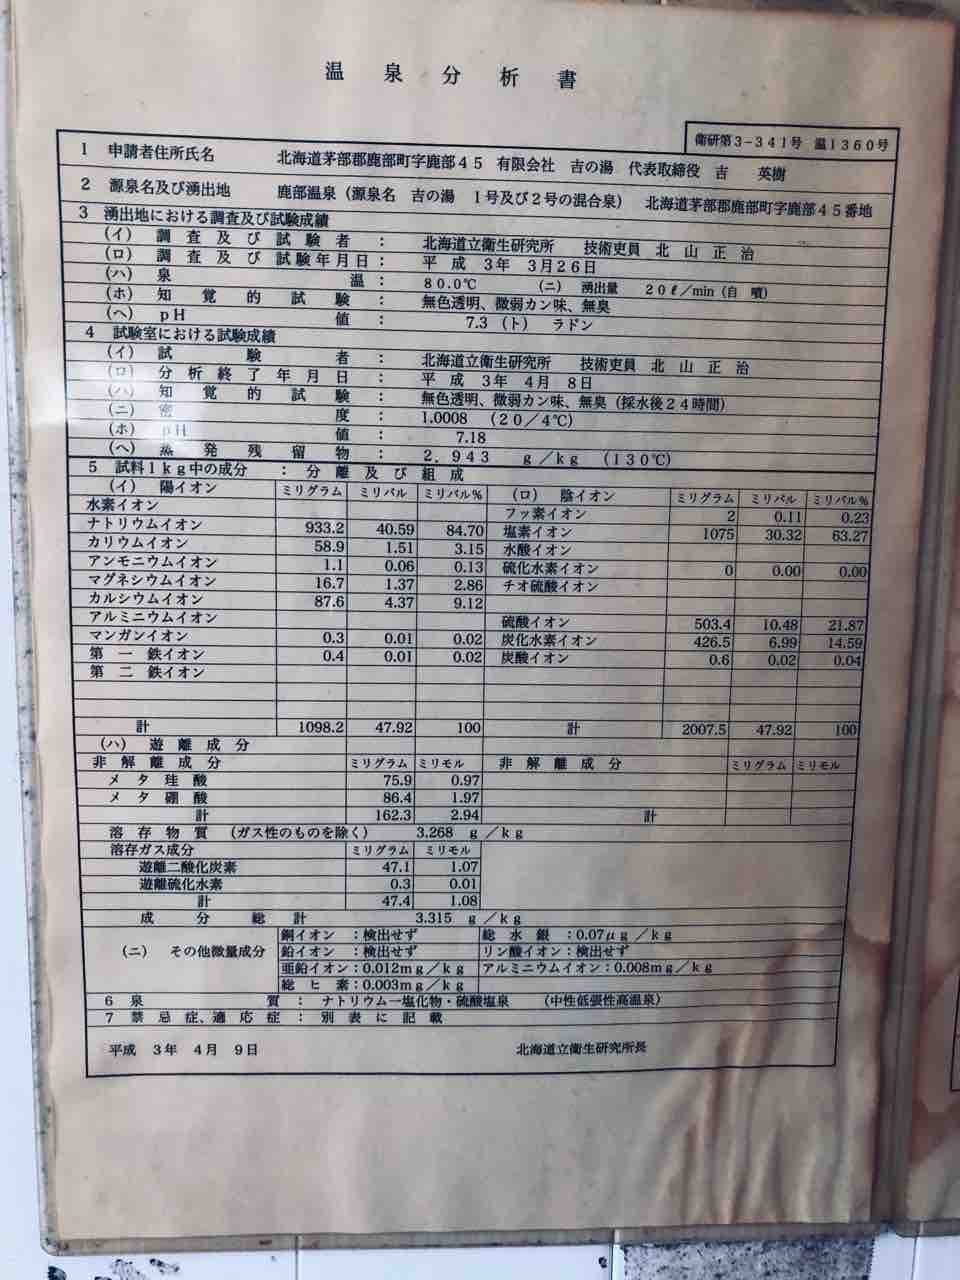 温泉分析書
衛研第3-341号 温1360号
1 申請者住所氏名 北海道茅部郡鹿部町字鹿部45 有限会社 吉の湯 代表取締役 吉 英樹
2 源泉名及び湧出地 鹿部温泉(源泉名 吉の湯 1号及び2号の混合泉) 北海道茅部郡鹿部町字鹿部45番地
3 湧出地における調査及び試験成績
(イ) 調査及び試験者 : 北海道立衛生研究所 技術吏員 北山正治
(ロ) 調査及び試験年月日 : 平成 3年 3月26日
(ハ) 泉温 : 80.0℃ (ニ) 湧出量 20ℓ/min(自噴)
(ホ) 知覚的試験 : 無色透明、微弱カン味、無臭
(ヘ) pH値 : 7.3 (ト) ラドン
4 試験室における試験成績
(イ) 試験者 : 北海道立衛生研究所 技術吏員 北山正治
(ロ) 分析終了年月日 : 平成 3年 4月 8日
(ハ) 知覚的試験 : 無色透明、微弱カン味、無臭(採水後24時間)
(ニ) 密度 : 1.0008 (20/4℃)
(ホ) pH値 : 7.18
(ヘ) 蒸発残留物 : 2.943 g/kg (130℃)
5 試料1kg中の成分 : 分離及び組成
(イ) 陽イオン ミリグラム ミリバル ミリバル% (ロ) 陰イオン ミリグラム ミリバル ミリバル%
水素イオン フッ素イオン 2 0.11 0.23
ナトリウムイオン 933.2 40.59 84.70 塩素イオン 1075 30.32 63.27
カリウムイオン 58.9 1.51 3.15 水酸イオン
アンモニウムイオン 1.1 0.06 0.13 硫化水素イオン 0 0.00 0.00
マグネシウムイオン 16.7 1.37 2.86 チオ硫酸イオン
カルシウムイオン 87.6 4.37 9.12
アルミニウムイオン 硫酸イオン 503.4 10.48 21.87
マンガンイオン 0.3 0.01 0.02 炭化水素イオン 426.5 6.99 14.59
第一鉄イオン 0.4 0.01 0.02 炭酸イオン 0.6 0.02 0.04
第二鉄イオン
計 1098.2 47.92 100 計 2007.5 47.92 100
(ハ) 遊離成分
非解離成分 ミリグラム ミリモル 非解離成分 ミリグラム ミリモル
メタ珪酸 75.9 0.97
メタ硼酸 86.4 1.97
計 162.3 2.94 計
溶存物質 (ガス性のものを除く) 3.268 g/kg
溶存ガス成分 ミリグラム ミリモル
遊離二酸化炭素 47.1 1.07
遊離硫化水素 0.3 0.01
計 47.4 1.08
成分総計 3.315 g/kg
(ニ) その他微量成分 銅イオン :検出せず 総水銀 :0.07μg/kg
鉛イオン :検出せず リン酸イオン:検出せず
亜鉛イオン:0.012mg/kg アルミニウムイオン:0.008mg/kg
総ヒ素:0.003mg/kg
6 泉質 : ナトリウム-塩化物・硫酸塩泉 (中性低張性高温泉)
7 禁忌症、適応症 : 別表に記載
平成 3年 4月 9日 北海道立衛生研究所長